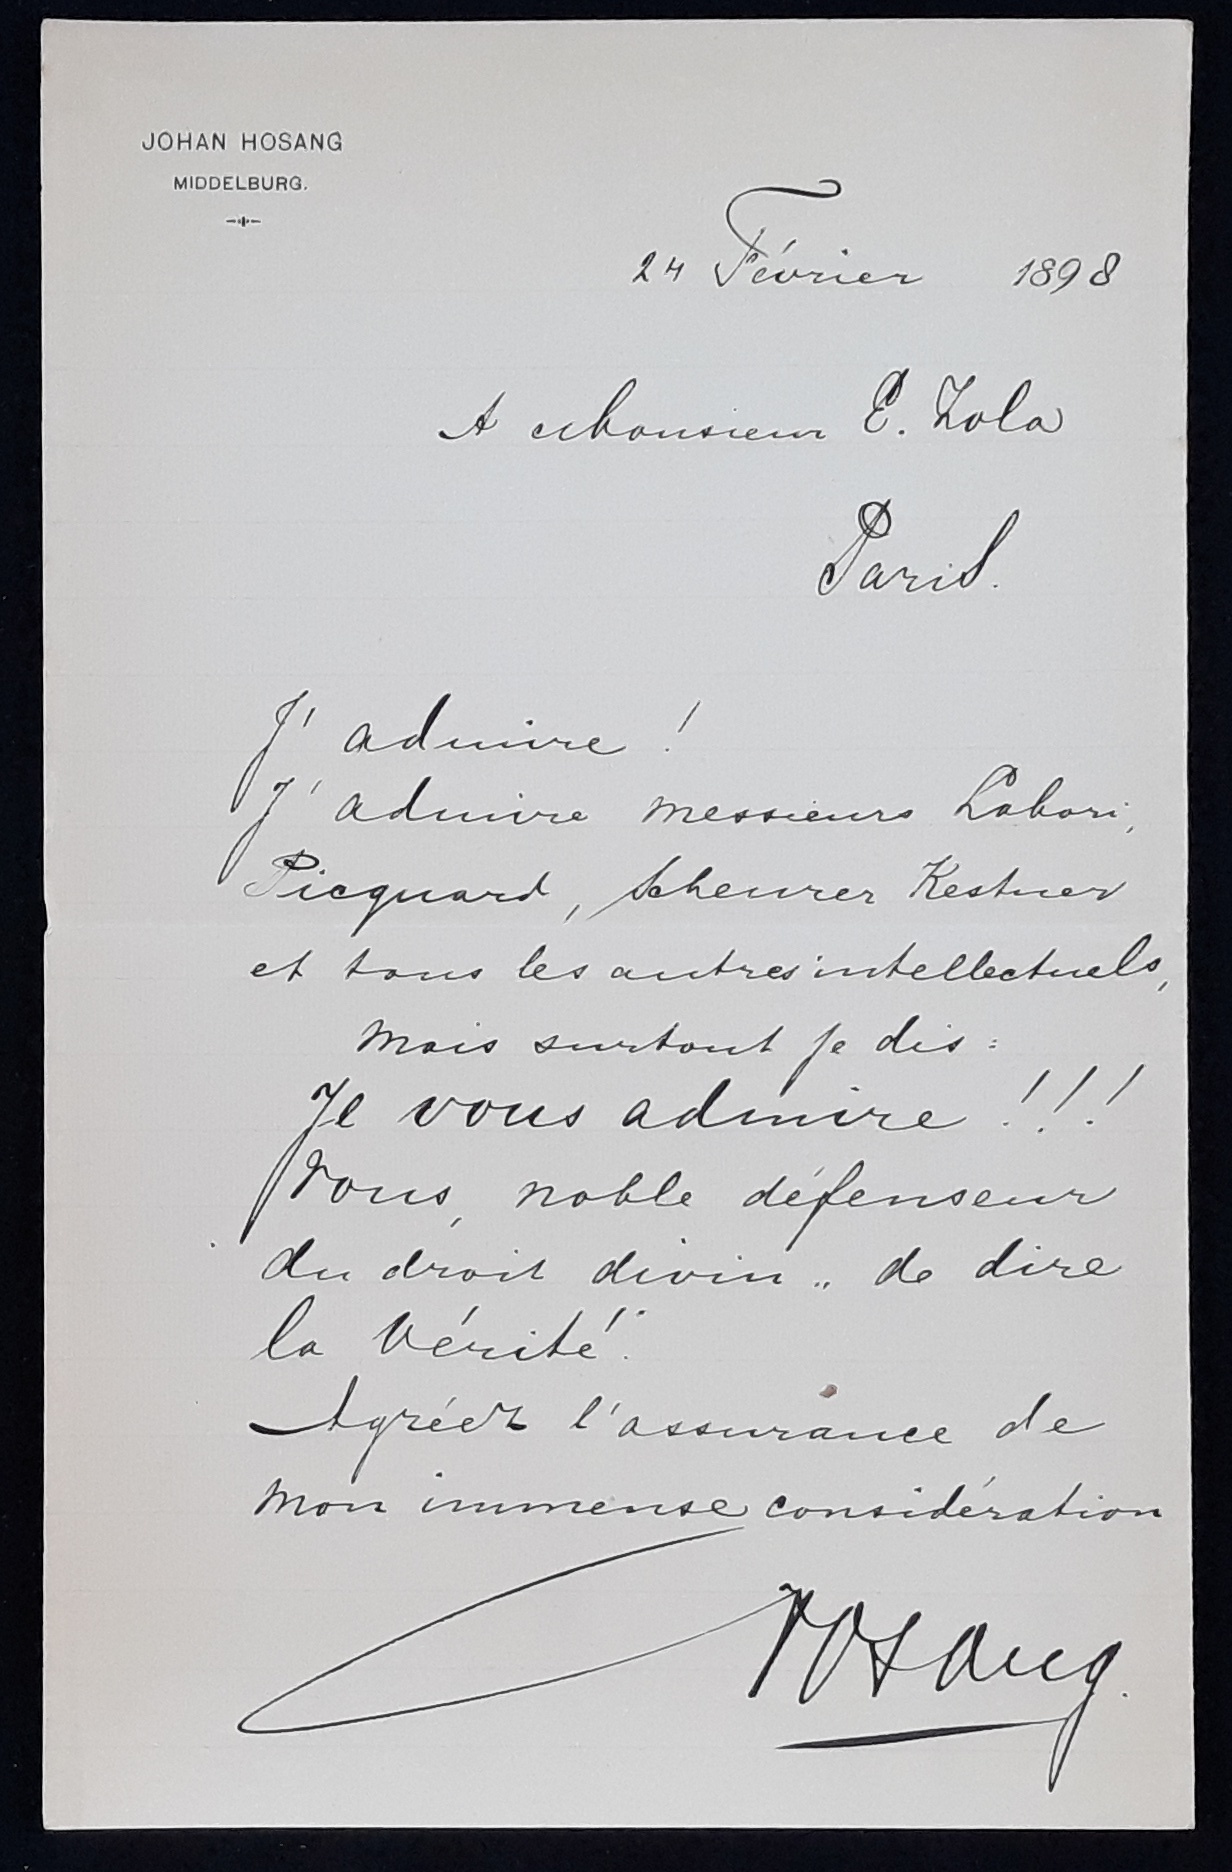 JOHAN HOSANG
MIDDELBURG.
24 Février 1898
A Monsieur E. Zola
Paris.
J'admire !
J'admire messieurs Labori,
Picquard, Scheurer Kestner
et tous les autres intellectuels,
mais surtout je dis :
Je vous admire !!!
Vous, noble défenseur
du droit divin „ de dire
la Vérité".
Agréez l'assurance de
mon immense considération
Hosang.